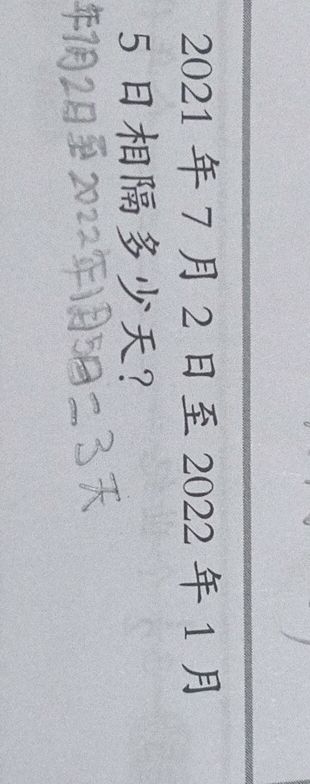 2021 年 7 月 2 日至 2022 年 1 月
5 日相隔多少天?
年1月2日至2022年1月5日=3天